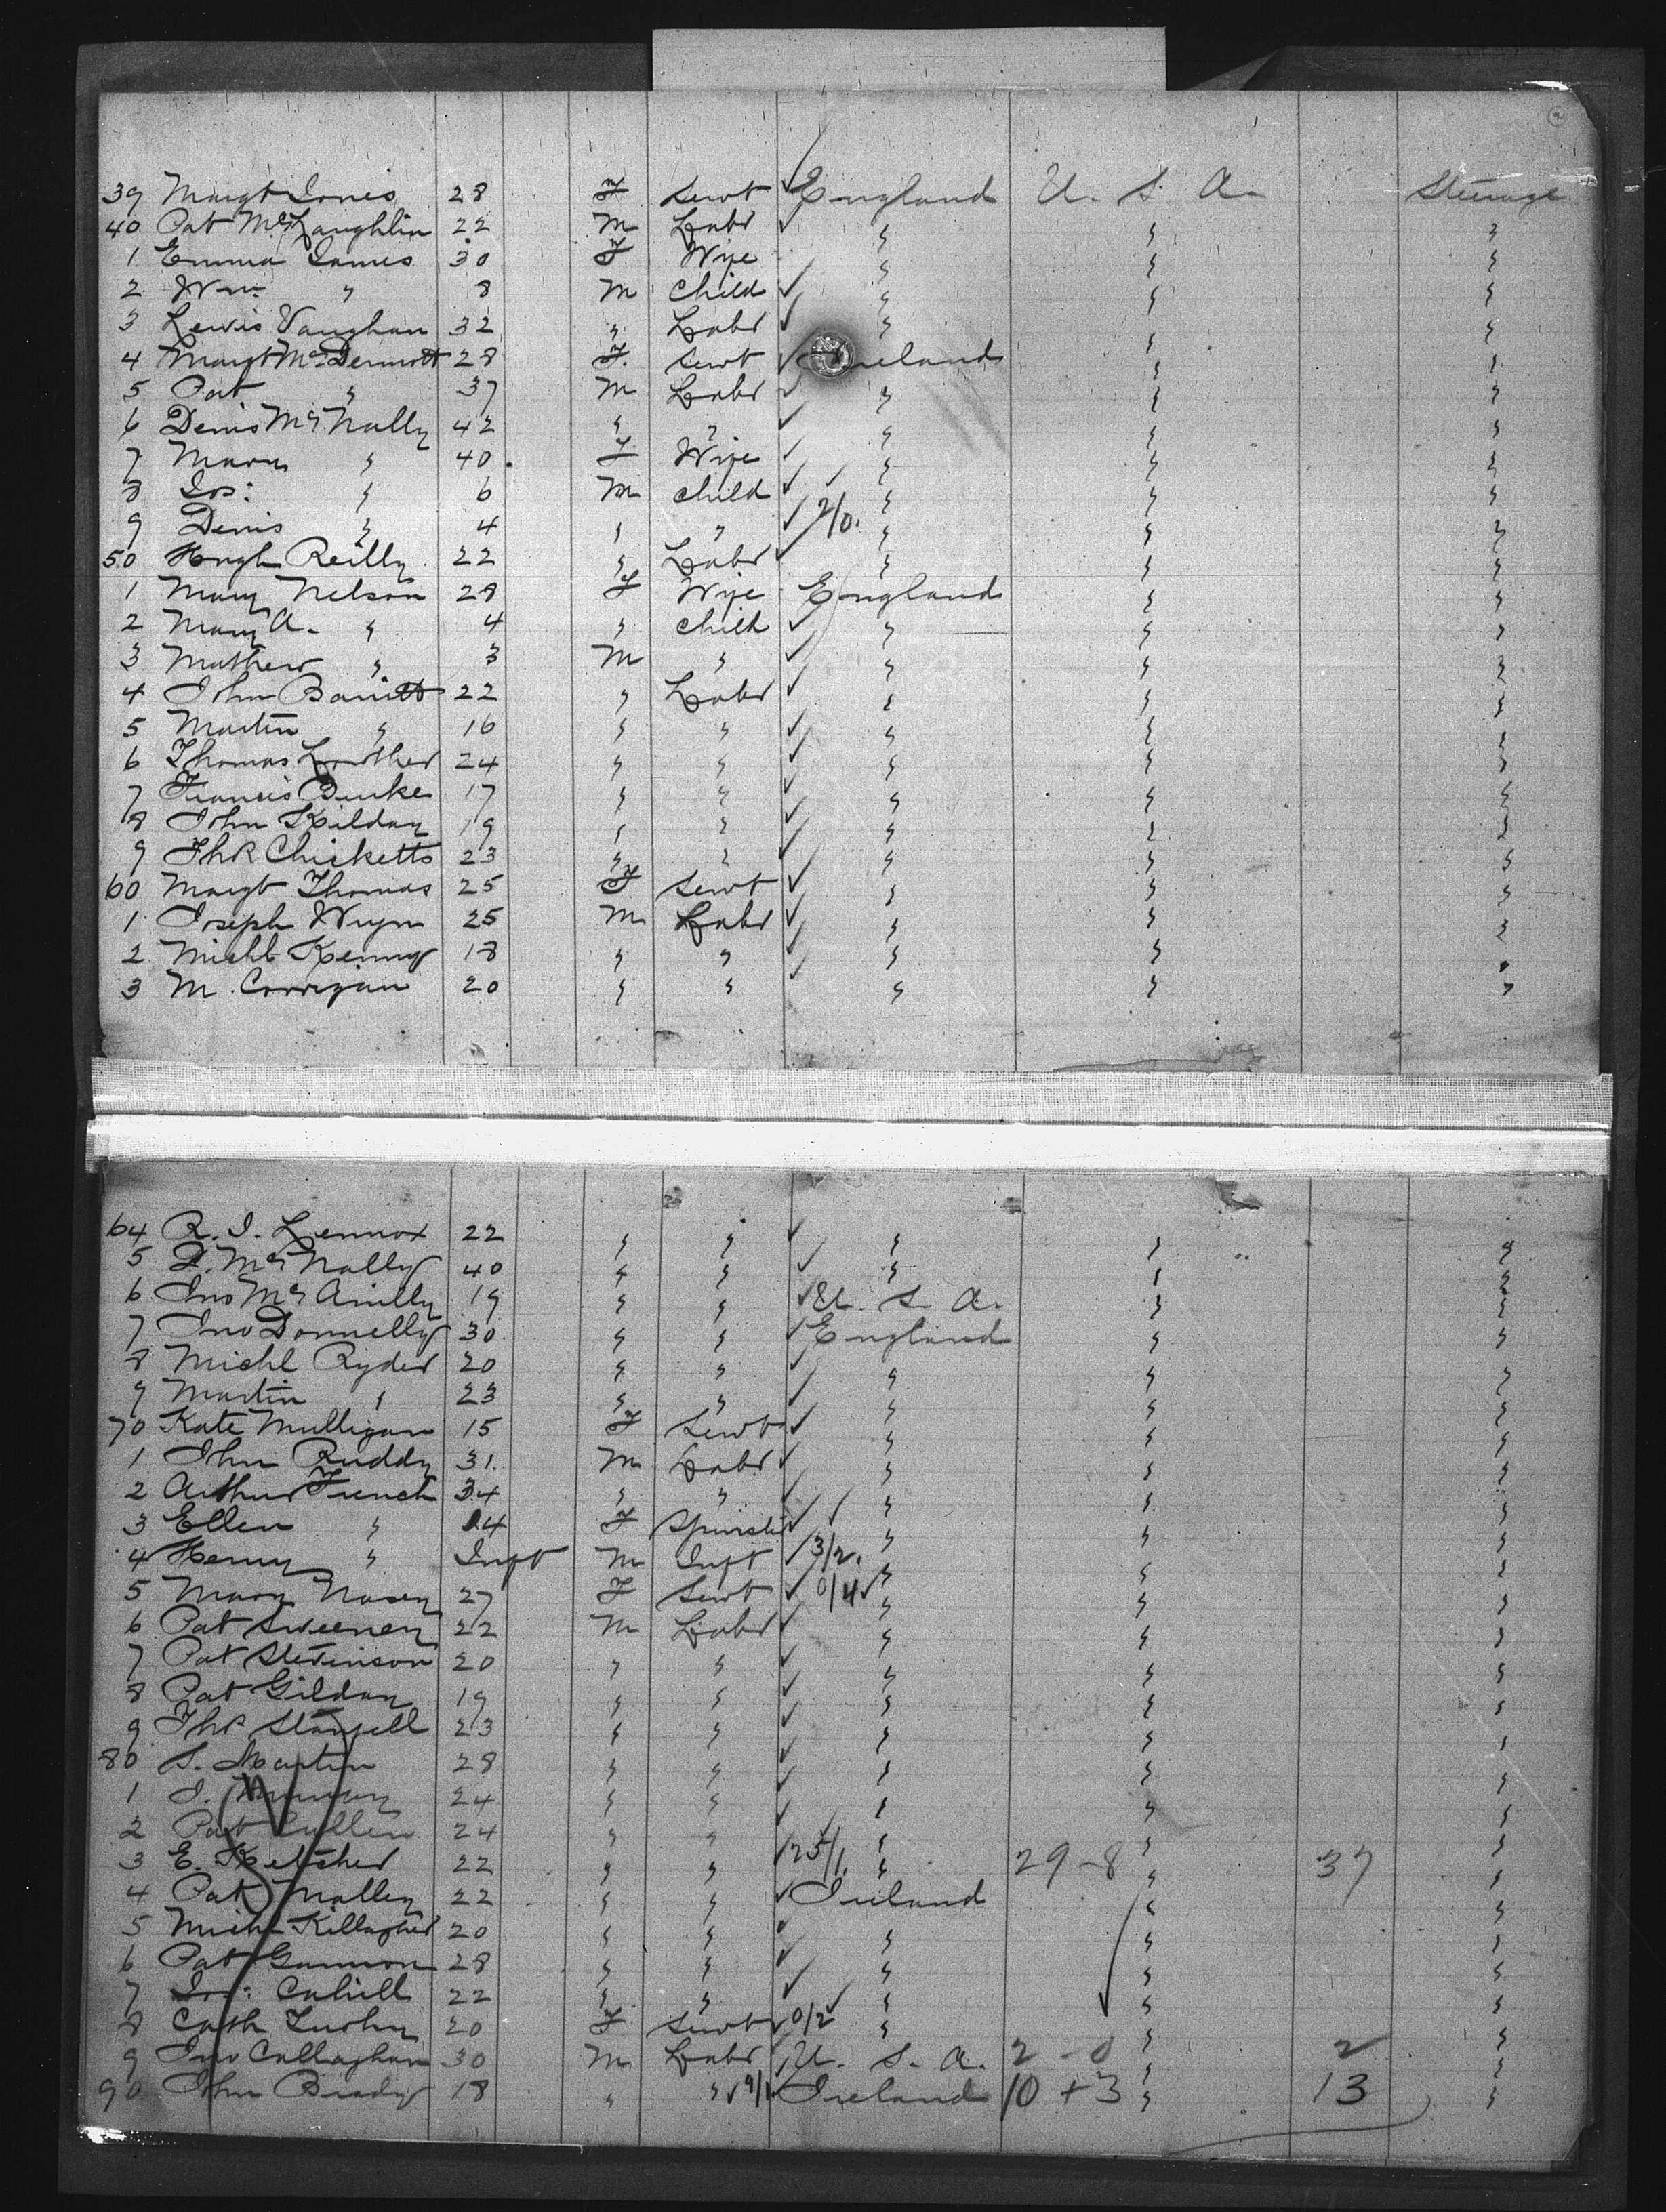 39 Margt Jones 28 F Servt England U. S. A. Steerage
40 Pat McLaughlin 22 M Labr " " "
1 Emma James 30 F Wife " " "
2 Wm " 8 M Child " " "
3 Lewis Vaughan 32 " Labr " " "
4 Margt McDermott 28 F. Servt Ireland " "
5 Pat " 37 M Labr " " "
6 Denis McNally 42 " " " " "
7 Mary " 40 F Wife " " "
8 Jos: " 6 M child " " "
9 Denis " 4 " " 2/0. " " "
50 Hugh Reilly 22 " Labr " " "
1 Mary Nelson 28 F Wife England " "
2 Mary A. " 4 " child " " "
3 Mathew " 3 M " " " "
4 John Barrett 22 " Labr " " "
5 Martin " 16 " " " " "
6 Thomas Lowther 24 " " " " "
7 Francis Burke 17 " " " " "
8 John Kilday 19 " " " " "
9 Ths Chicketts 23 " " " " "
60 Margt Thomas 25 F Servt " " "
1 Joseph Wynn 25 M Labr " " "
2 Michl Kenny 18 " " " " "
3 M. Corrigan 20 " " " " "
64 R. J. Lennox 22 " " " " "
5 McNally 40 " " " " "
6 Jno 19 " " U. S. A. " "
7 Jno Donnelly 30 " " England " "
8 Michl Ryder 20 " " " " "
9 Martin " 23 " " " " "
70 Kate Mulligan 15 F Servt " " "
1 John Ruddy 31. M Labr " " "
2 Arthur French 34 " " " " "
3 Ellen " 14 F Spinster " " "
4 Henry " Inft M Inft 3/2. " " "
5 Mary 27 F Servt 0/4 " " "
6 Pat Sweeney 22 M Labr " " "
7 Pat Stevinson 20 " " " " "
8 Pat Gilday 19 " " " " "
9 Ths 23 " " " " "
80 S. Martin 28 " " " " "
1 J. Murray 24 " " " " "
2 Pat Cullen 24 " " " " "
3 E. Ketcher 22 " " 25/1. " 29-8 " 37 "
4 Pat Malley 22 " " Ireland " "
5 Michl Killagher 20 " " " " "
6 Pat Gannon 28 " " " " "
7 Jos: Cahill 22 " " " " "
8 Cath 20 F Servt 0/2 " " "
9 Jno Callaghan 30 M Labr U. S. A. 2-0 " 2 "
90 John Brady 18 " " 9/1 Ireland 10+3 " 13 "